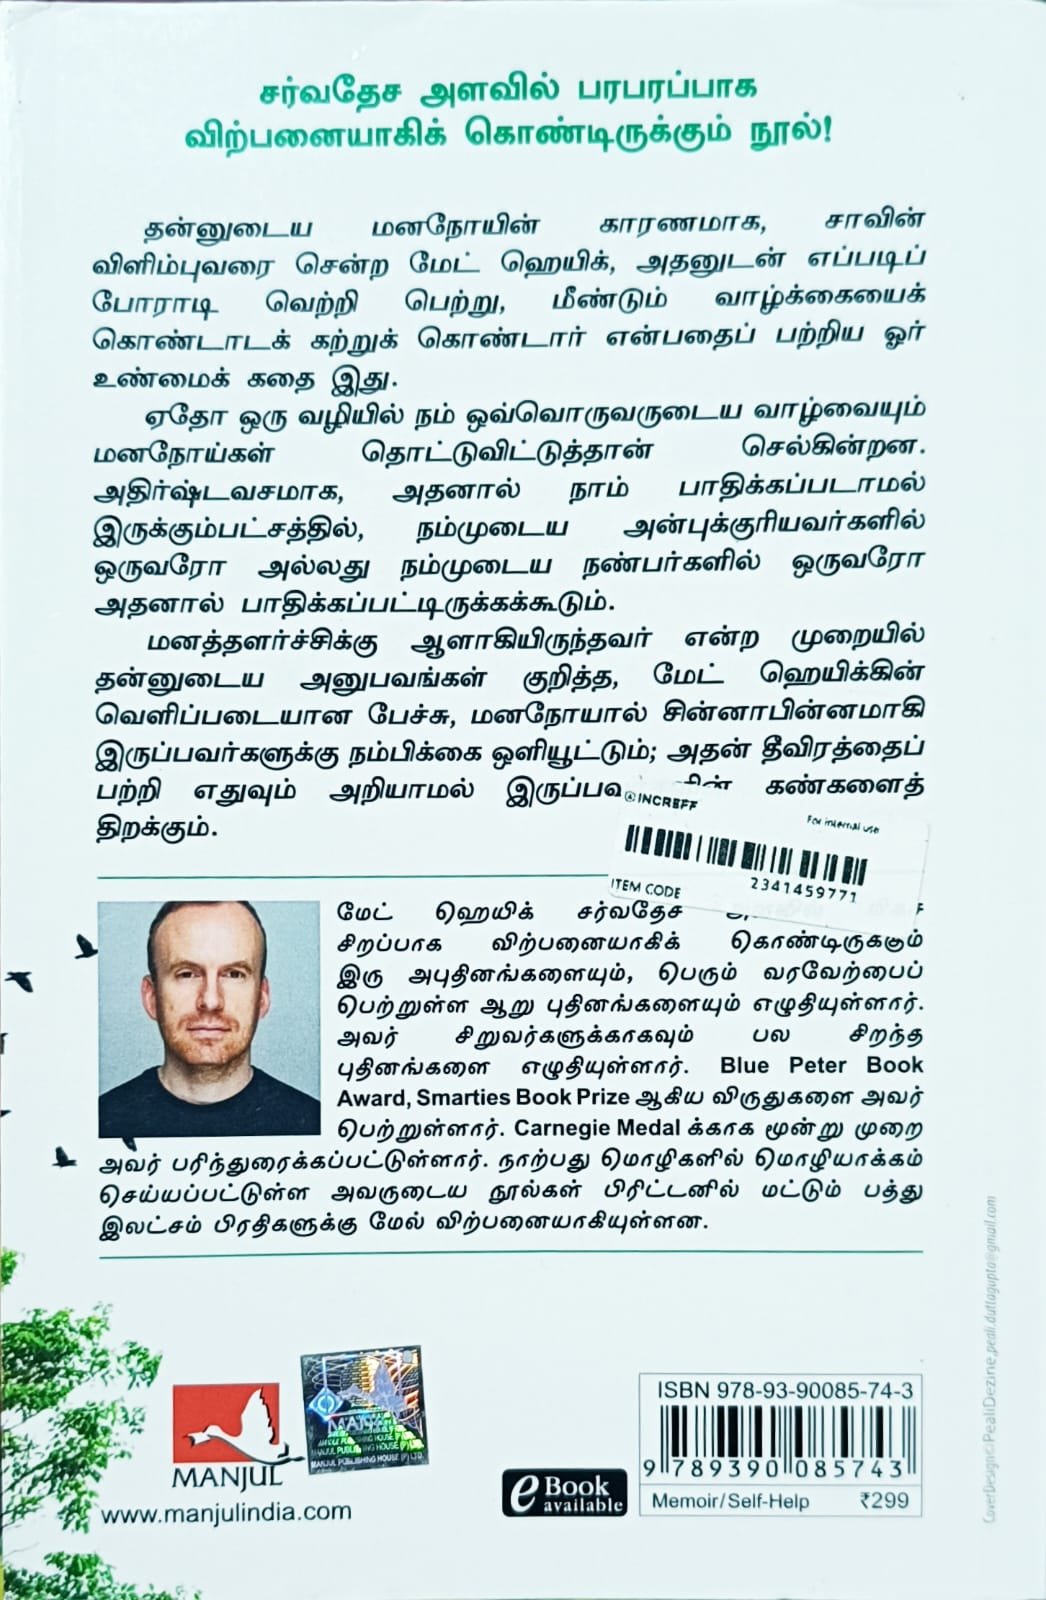 சர்வதேச அளவில் பரபரப்பாக
விற்பனையாகிக் கொண்டிருக்கும் நூல்!
தன்னுடைய மனநோயின் காரணமாக, சாவின்
விளிம்புவரை சென்ற மேட் ஹெயிக், அதனுடன் எப்படிப்
போராடி வெற்றி பெற்று, மீண்டும் வாழ்க்கையைக்
கொண்டாடக் கற்றுக் கொண்டார் என்பதைப் பற்றிய ஓர்
உண்மைக் கதை இது.
ஏதோ ஒரு வழியில் நம் ஒவ்வொருவருடைய வாழ்வையும்
மனநோய்கள் தொட்டுவிட்டுத்தான் செல்கின்றன.
அதிர்ஷ்டவசமாக, அதனால் நாம் பாதிக்கப்படாமல்
இருக்கும்பட்சத்தில், நம்முடைய அன்புக்குரியவர்களில்
ஒருவரோ அல்லது நம்முடைய நண்பர்களில் ஒருவரோ
அதனால் பாதிக்கப்பட்டிருக்கக்கூடும்.
மனத்தளர்ச்சிக்கு ஆளாகியிருந்தவர் என்ற முறையில்
தன்னுடைய அனுபவங்கள் குறித்த, மேட் ஹெயிக்கின்
வெளிப்படையான பேச்சு, மனநோயால் சின்னாபின்னமாகி
இருப்பவர்களுக்கு நம்பிக்கை ஒளியூட்டும்; அதன் தீவிரத்தைப்
பற்றி எதுவும் அறியாமல் கண்களைத்
திறக்கும்.
INCREFF
For internal use
2341459771
ITEM CODE
மேட் ஹெயிக் சர்வதேச
சிறப்பாக விற்பனையாகிக் கொண்டிருக்கும்
இரு அபுதினங்களையும், பெரும் வரவேற்பைப்
பெற்றுள்ள ஆறு புதினங்களையும் எழுதியுள்ளார்.
அவர் சிறுவர்களுக்காகவும் பல சிறந்த
புதினங்களை எழுதியுள்ளார். Blue Peter Book
Award, Smarties Book Prize ஆகிய விருதுகளை அவர்
பெற்றுள்ளார். Carnegie Medal க்காக மூன்று முறை
அவர் பரிந்துரைக்கப்பட்டுள்ளார். நாற்பது மொழிகளில் மொழியாக்கம்
செய்யப்பட்டுள்ள அவருடைய நூல்கள் பிரிட்டனில் மட்டும் பத்து
இலட்சம் பிரதிகளுக்கு மேல் விற்பனையாகியுள்ளன.
CoverDesign©PealiDezine,peali.duttagupta@gmail.com
MANJUL
www.manjulindia.com
MANJUL PUBLISHING HOUSE (P) LTD.
eBook
available
ISBN 978-93-90085-74-3
9 789390 085743
Memoir/Self-Help ₹299